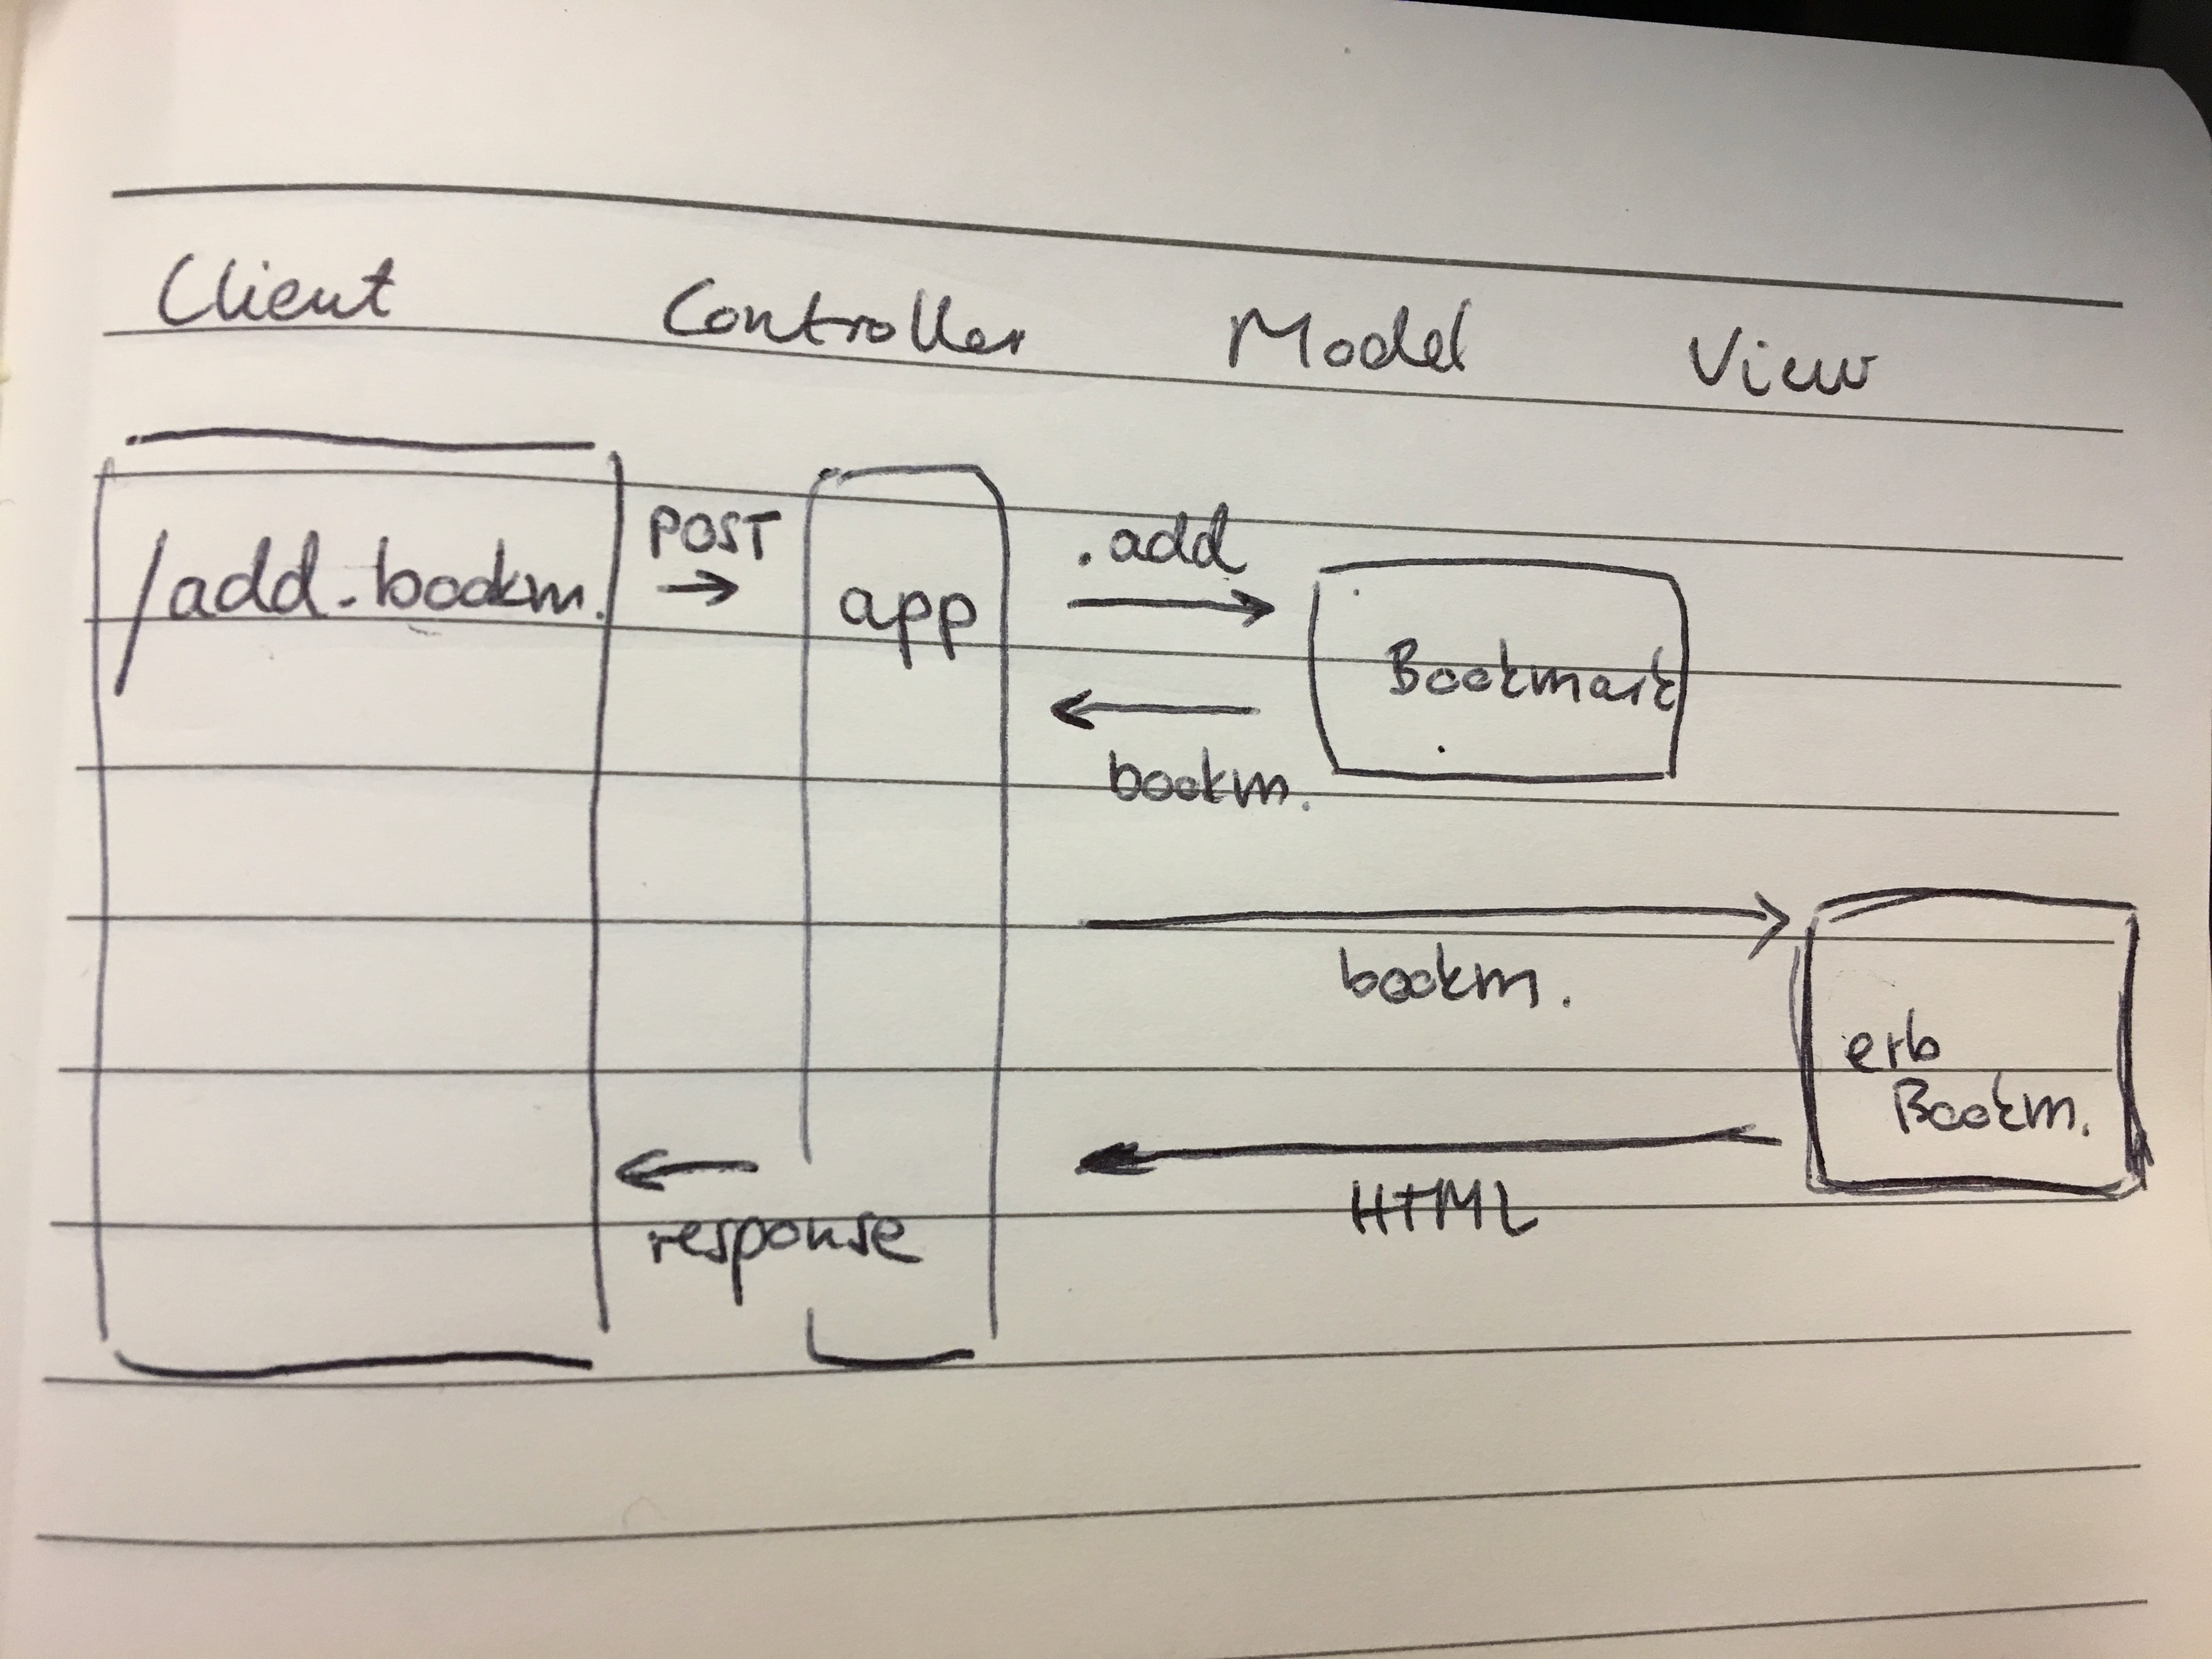 Client Controller Model View
/add-bookm. POST app .add Bookmark
bookm.
bookm.
erb
Bookm.
response HTML